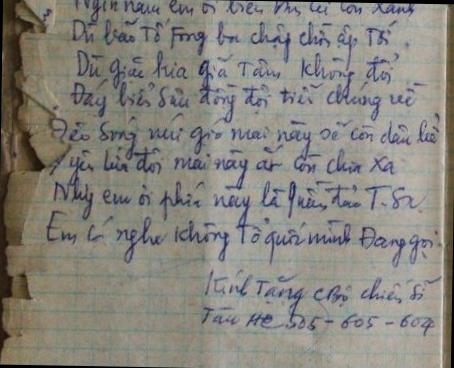 Ngìn năm em ơi biển thị cứ còn xanh
Dù bão tố fong ba chập chờn ập tối.
Dù giặc kia giã tâm không đổi
Đáy biển sâu đồng đội tiếc chúng
Đèo sóng núi gió mai này sẽ còn
yên đôi mai này còn chia xa
Nhưng em ơi phía này là quần đảo T-Sa.
Em có nghe không Tổ quốc mình đang gọi.
Kính Tặng CBộ chiến sĩ
Tàu HQ 505-605-604